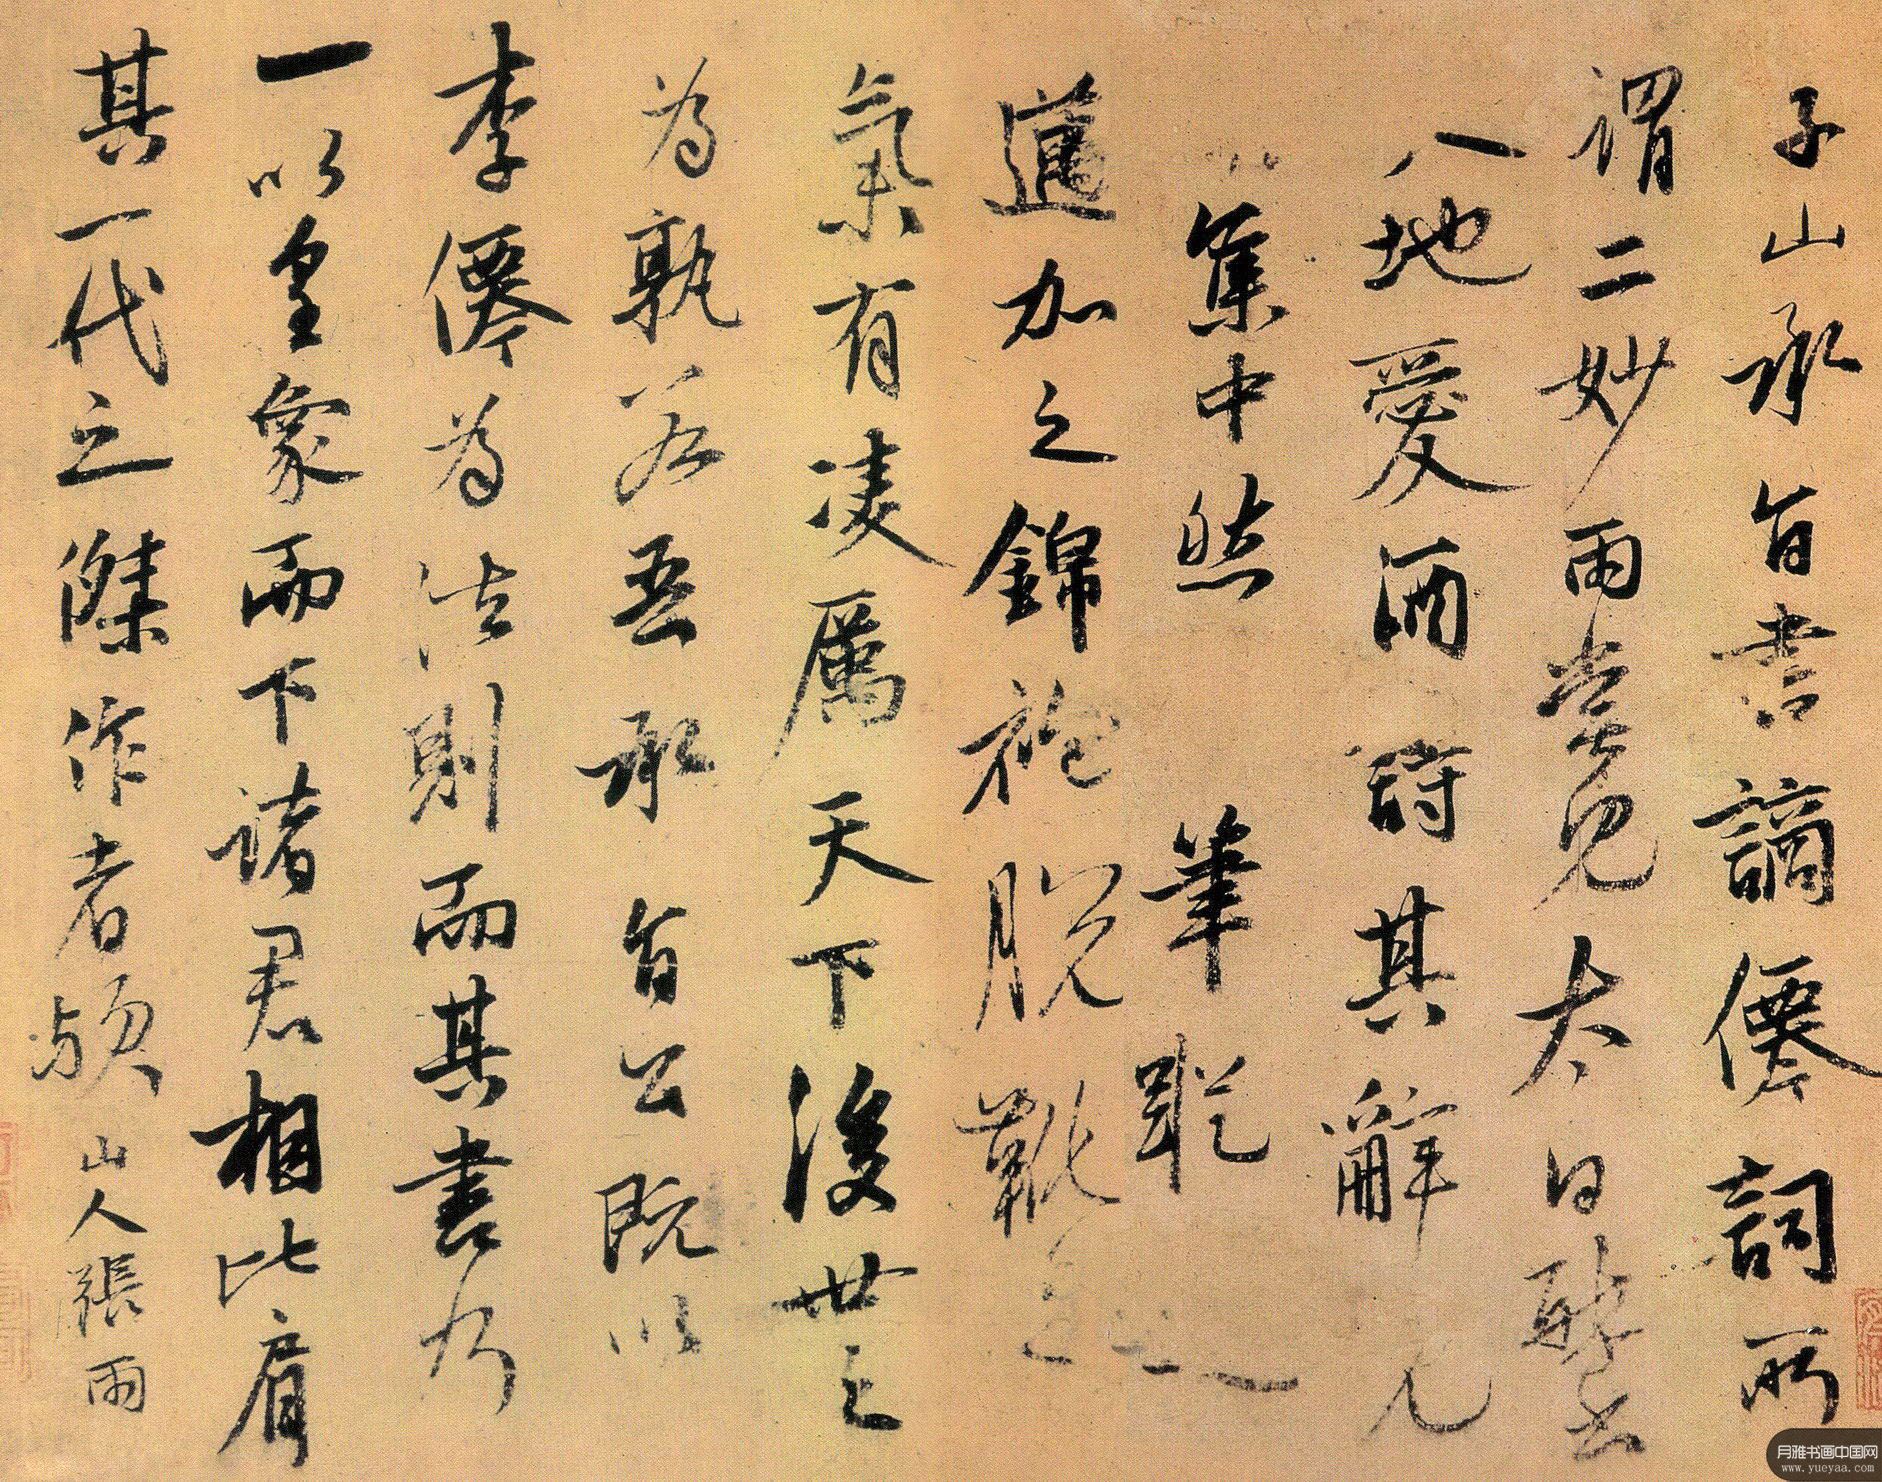 子山承旨書謫僊詞所
謂二妙雨嘗見太白醉書
八地愛酒詩其辭見
集中然筆蹤
逌加之錦袍脫靴之
氣有凌厲天下後世之
為孰若吾承旨公既以
李僊為法則而其書乃
一以皇象而下諸君相比肩
其一代之傑作者歟
山人張雨
月雅书画中国网
www.yueyaa.com